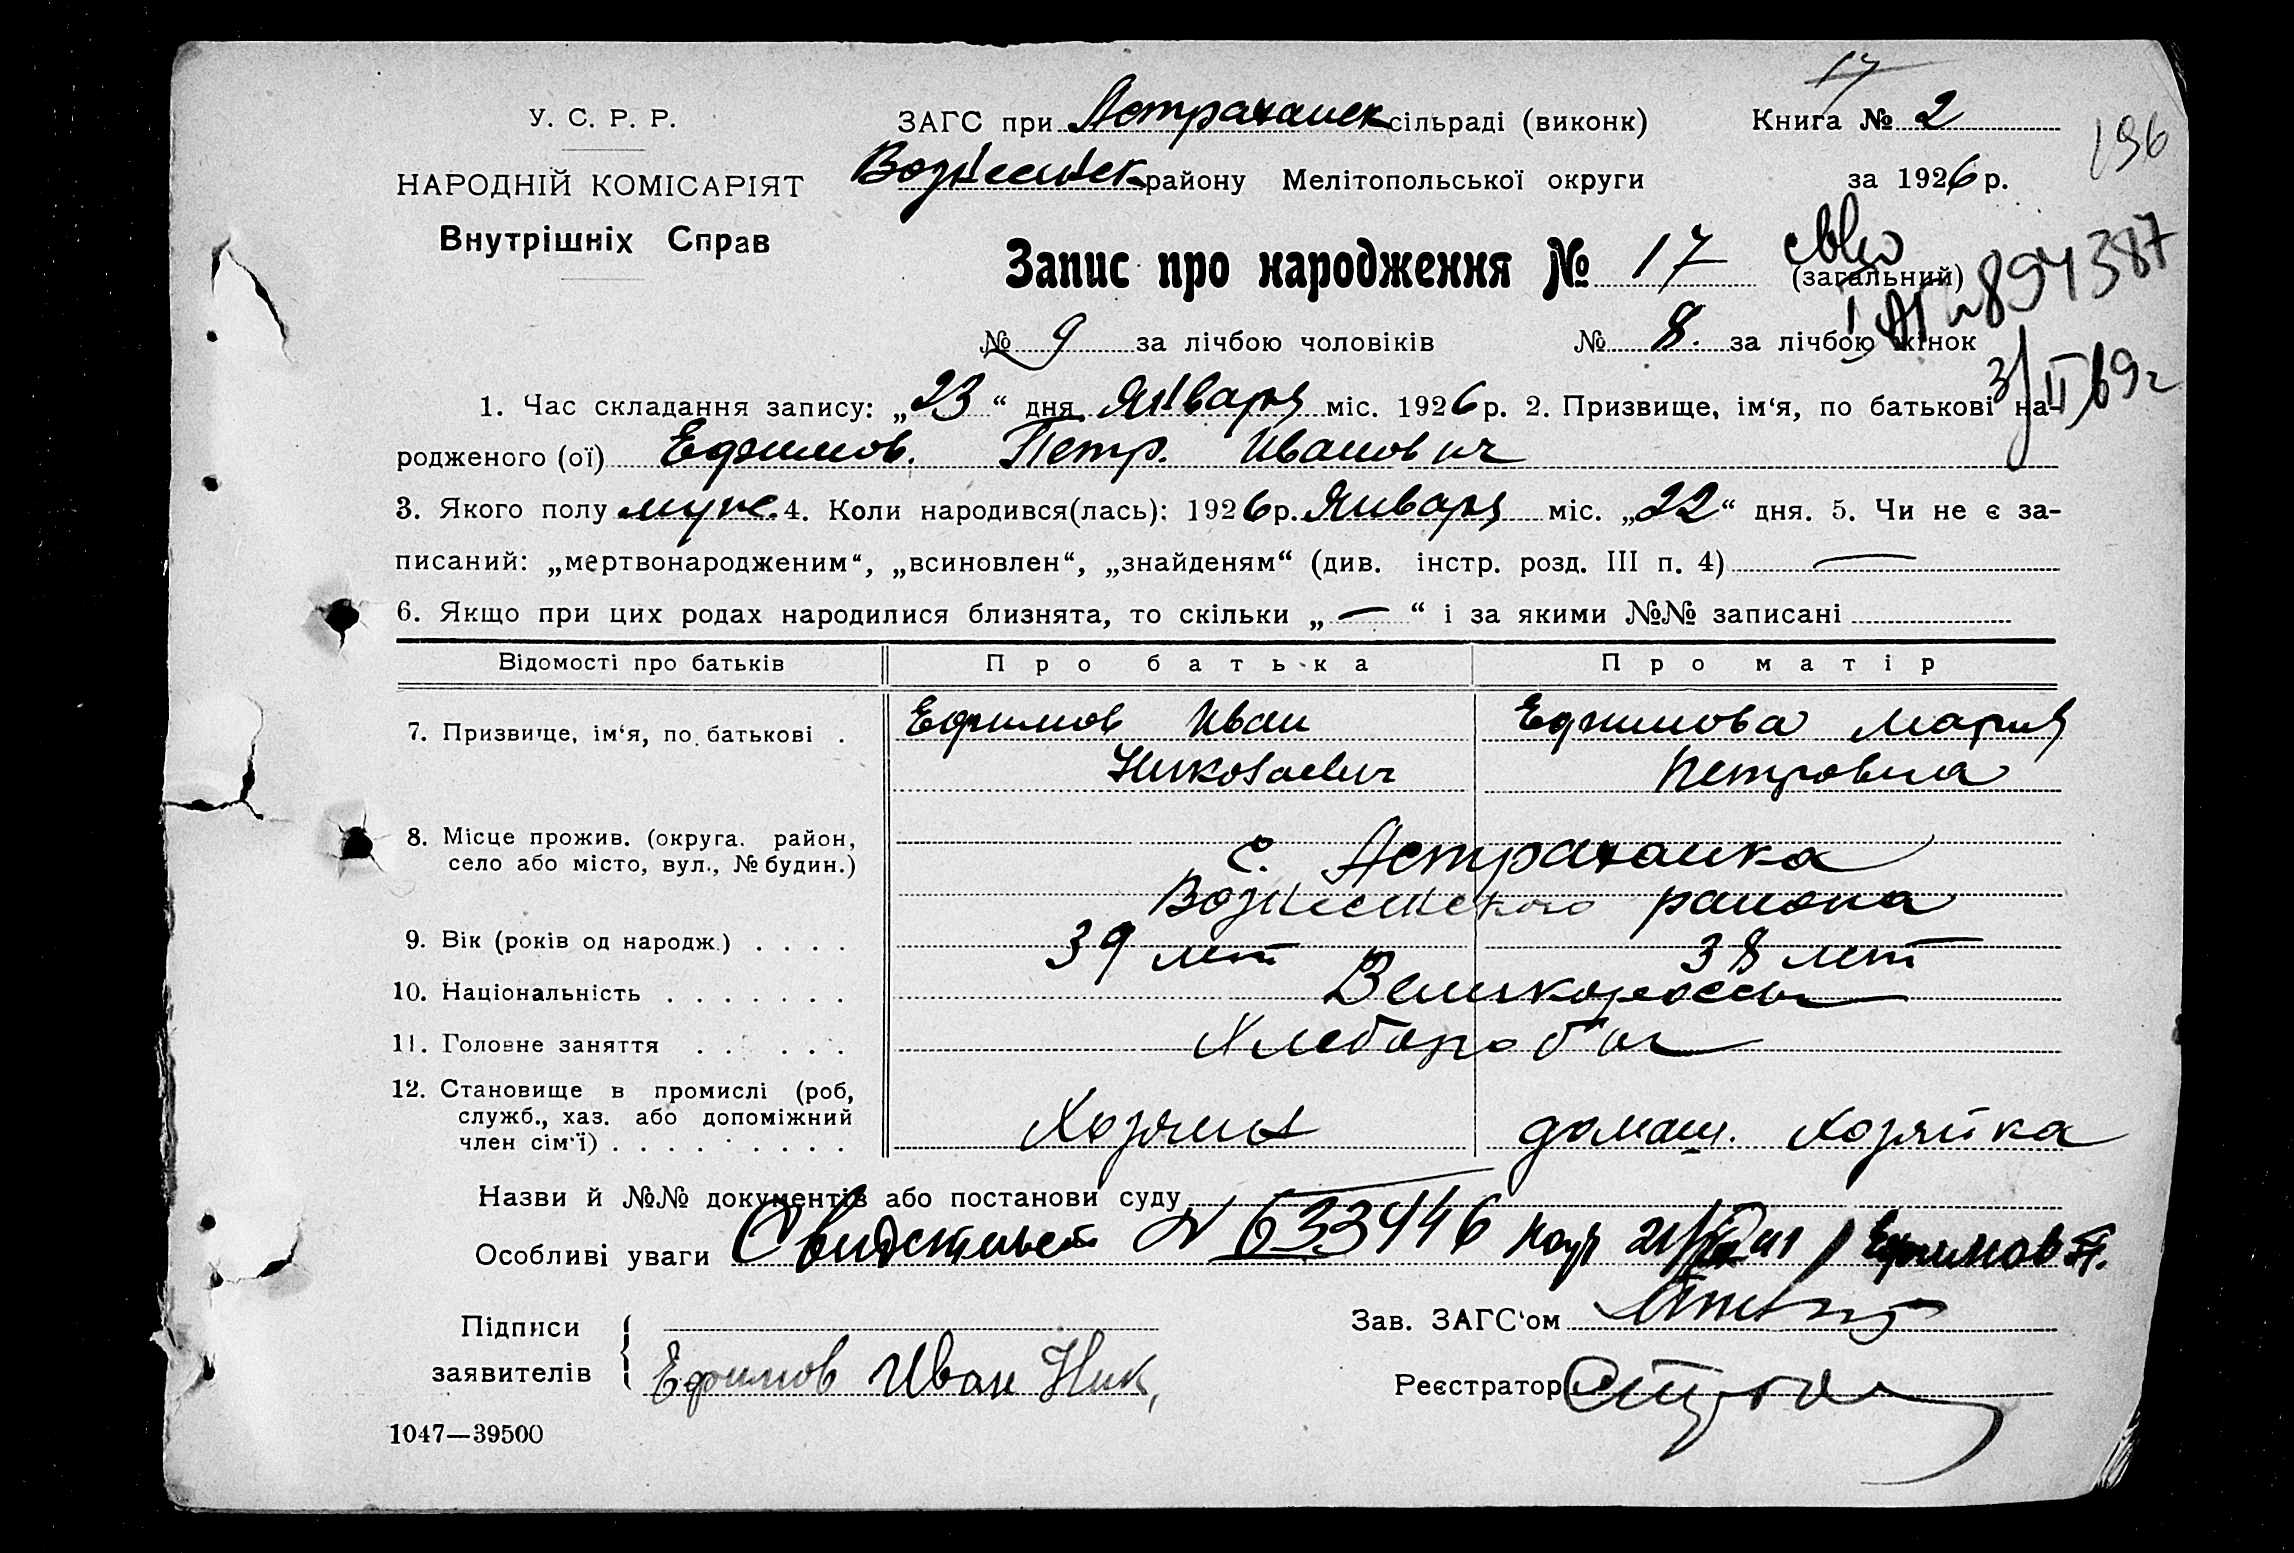 17
У. С. Р. Р.
ЗАГС при Астраханск сільраді (виконк)
Книга № 2
196
НАРОДНІЙ КОМІСАРІЯТ
Вознесенск району Мелітопольської округи
за 1926 р.
Внутрішніх Справ
Запис про народження № 17
(загальний)
894387
№ 9 за лічбою чоловіків № 8. за лічбою жінок
3/II 69г
1. Час складання запису: „23“ дня Января міс. 1926 р. 2. Призвище, ім‘я, по батькові на-
родженого (ої) Ефимов. Петр. Иванович
3. Якого полу муж. 4. Коли народився(лась): 1926 р. Января міс. „22“ дня. 5. Чи не є за-
писаний: „мертвонародженим“, „всиновлен“, „знайденям“ (див. інстр. розд. III п. 4) —
6. Якщо при цих родах народилися близнята, то скільки „—“ і за якими №№ записані
Відомості про батьків Про батька Про матір
7. Призвище, ім‘я, по батькові . Ефимов Иван Ефимова Мария
Николаевич Петровна
8. Місце прожив. (округа. район,
село або місто, вул., № будин.)
с. Астраханка
Вознесенского района
9. Вік (років од народж.) . . . . 39 лет 38 лет
10. Національність . . . . . . . Великороссы
11. Головне заняття . . . . . . Хлебороб
12. Становище в промислі (роб,
служб., хаз. або допоміжний
член сім‘ї) . . . . . . . . Хозяин домаш. хозяйка
Назви й №№ документів або постанови суду
Особливі уваги Свидетельст N 633446 Ефимов П.
Підписи
заявителів
Ефимов Иван Ник,
Зав. ЗАГС‘ом
Реєстратор
1047—39500